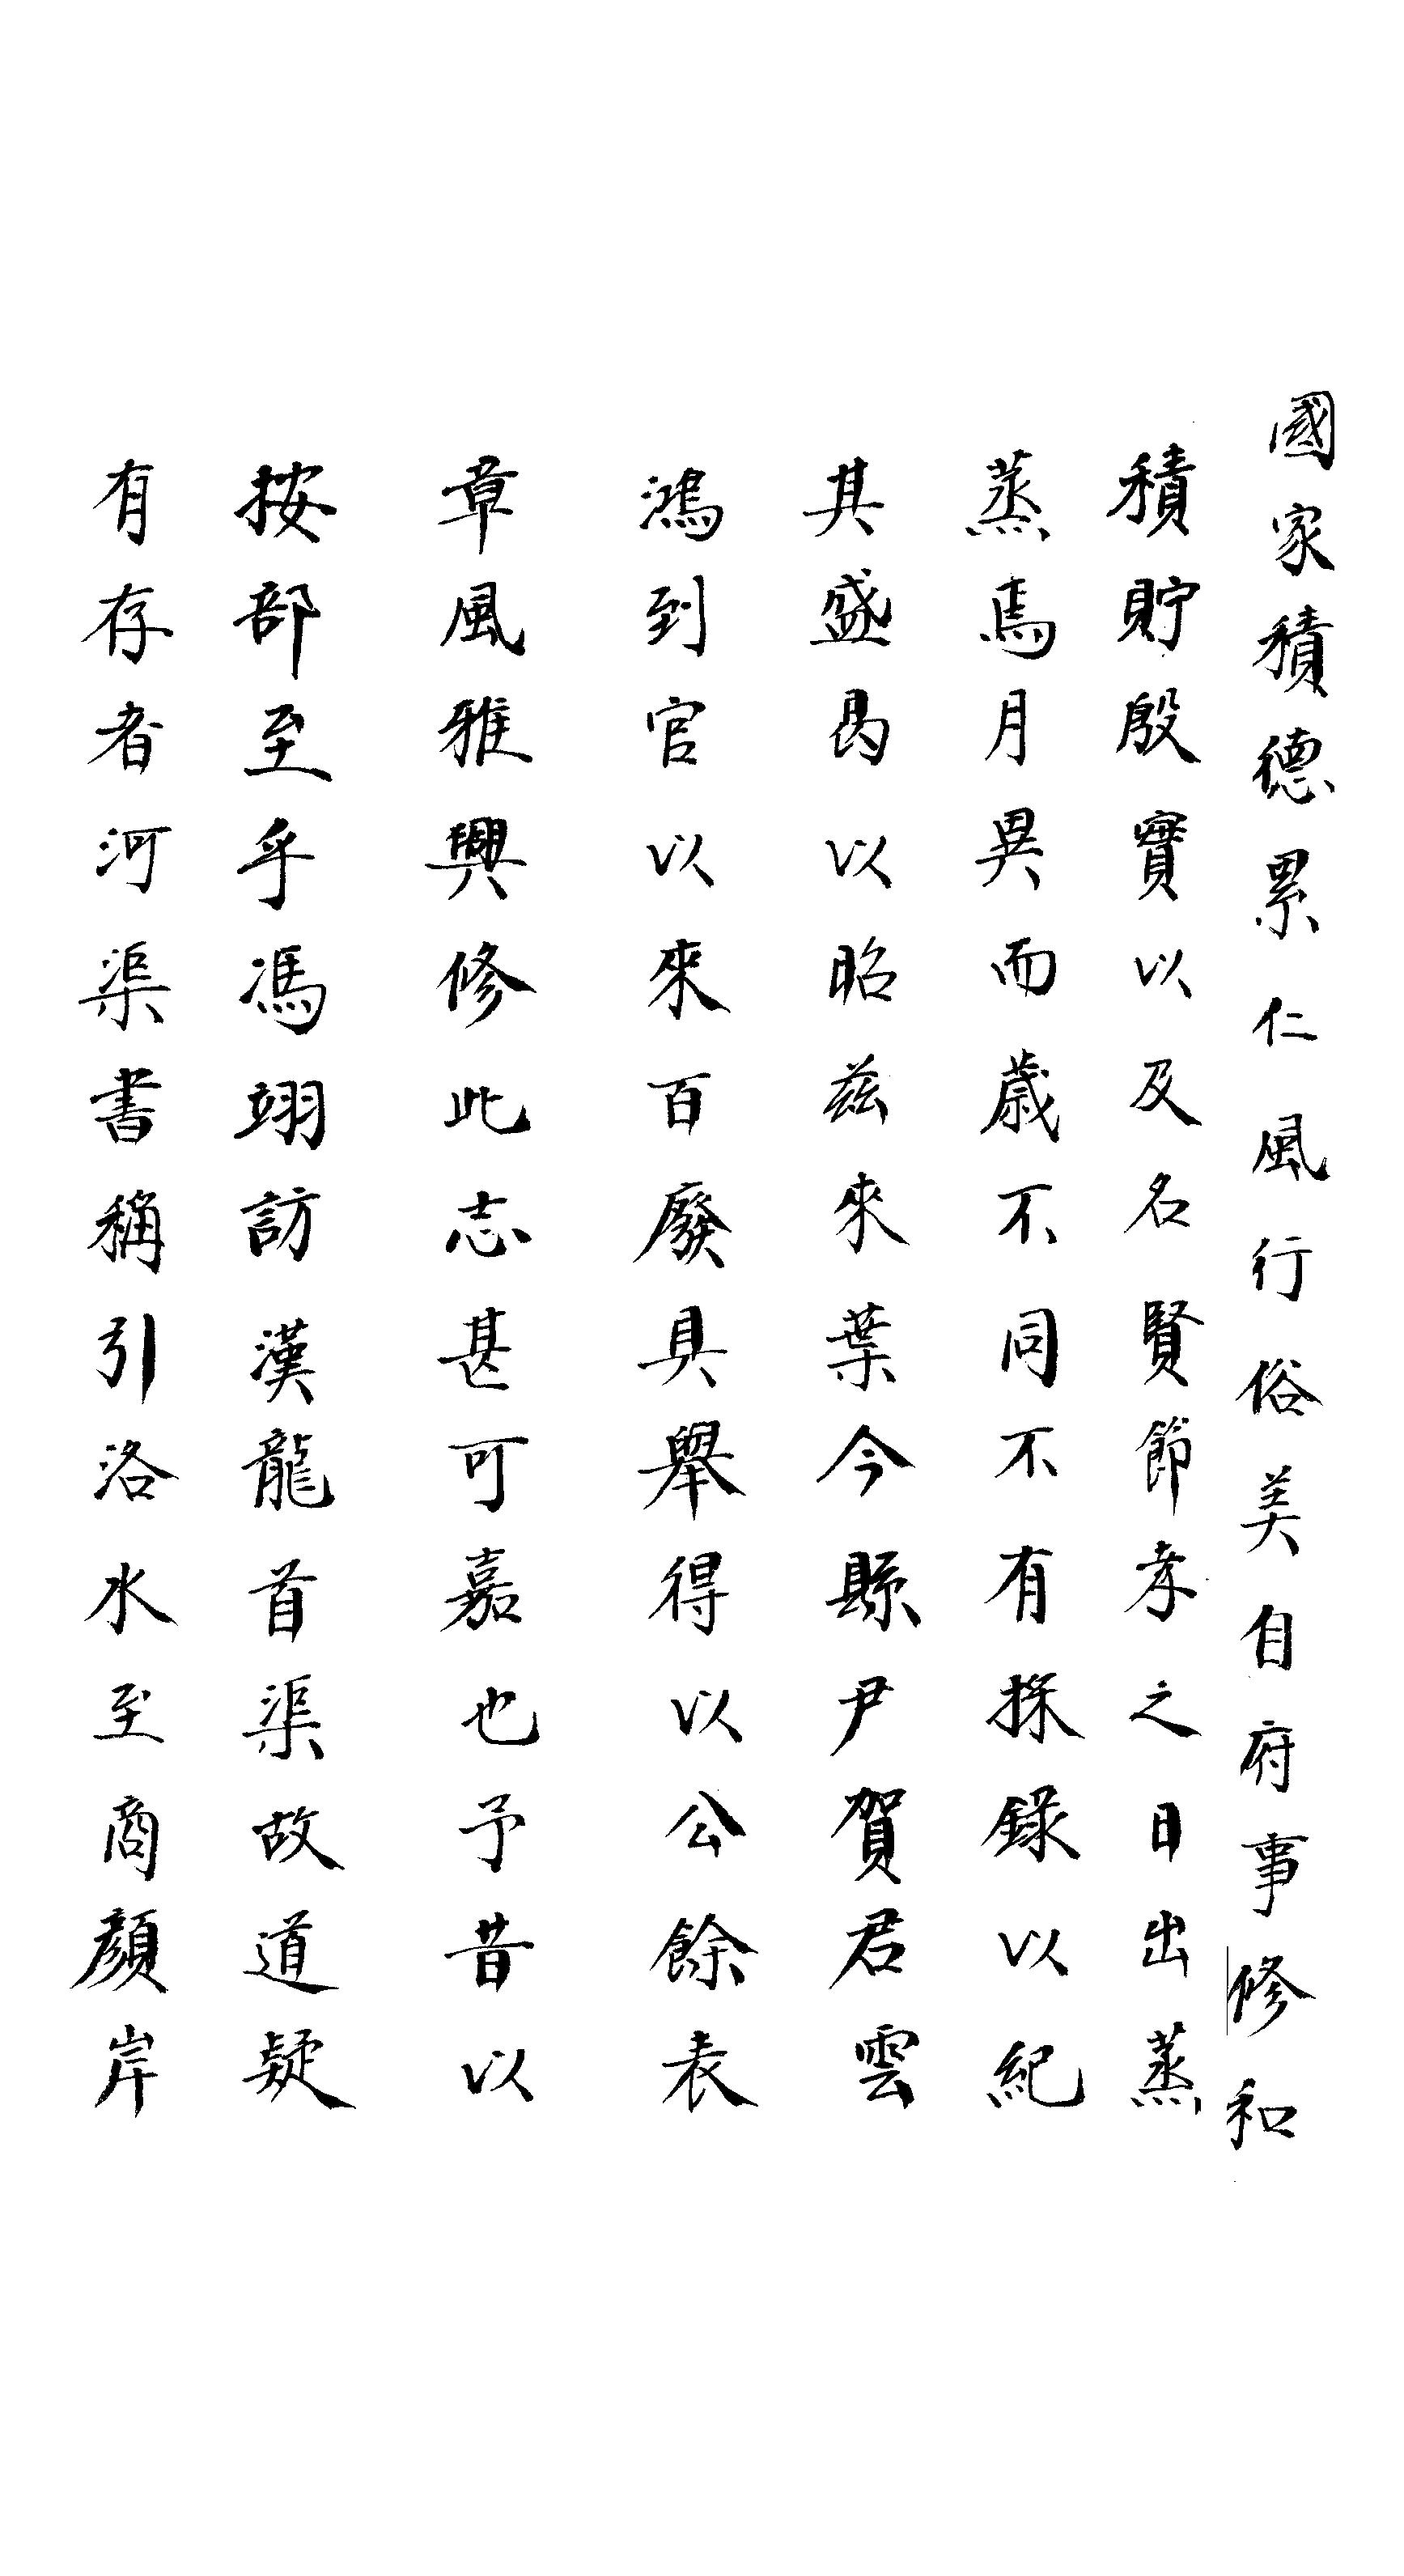 國家積德累仁風行俗美自府事修和
積貯殷實以及名賢節孝之日出蒸
蒸焉月異而歲不同不有採錄以紀
其盛曷以昭茲來葉今縣尹賀君雲
鴻到官以來百廢具舉得以公餘表
章風雅興修此志甚可嘉也予昔以
按部至乎馮翊訪漢龍首渠故道疑
有存者河渠書稱引洛水至商顏岸